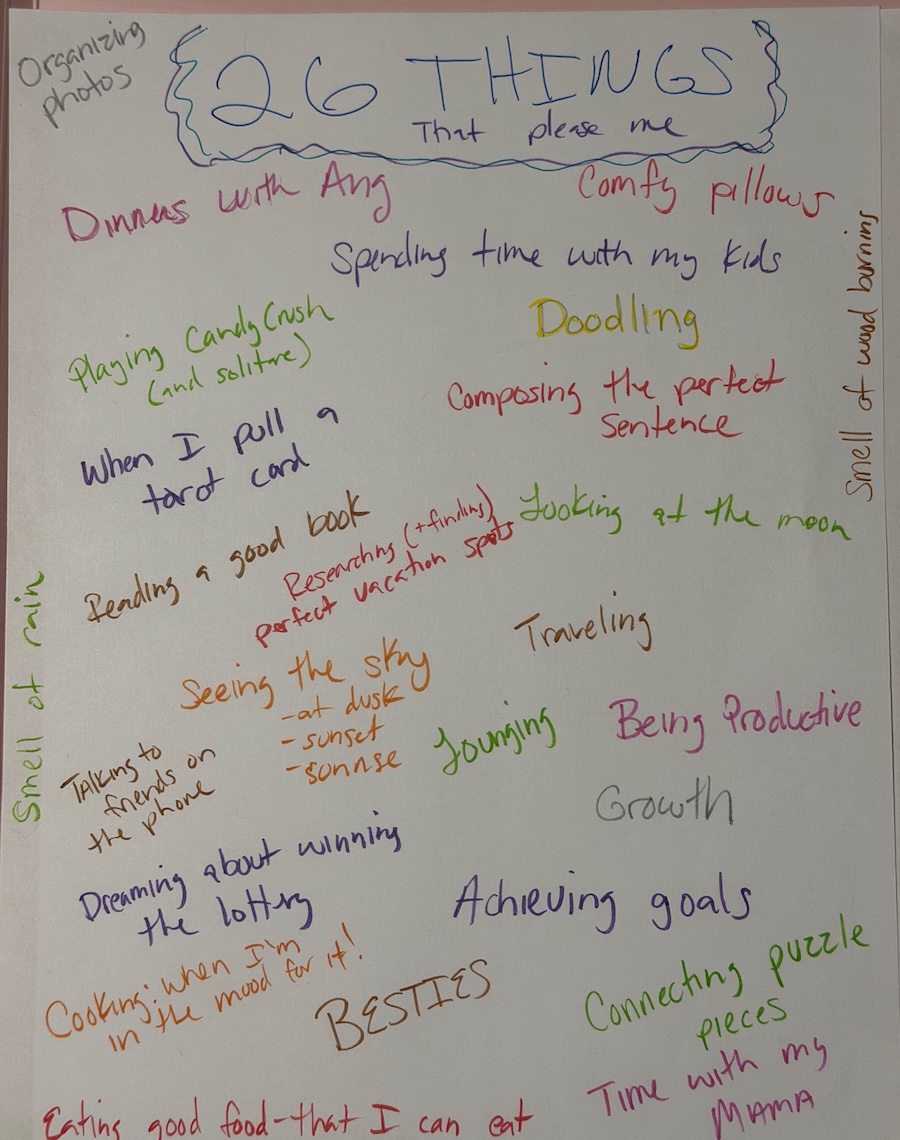 Organizing
photos
26 THINGS
That please me
Dinners with Ang
Comfy pillows
Spending time with my kids
Smell of wood burning
Playing Candy Crush
(and solitare)
Doodling
Composing the perfect
sentence
When I pull a
tarot card
Looking at the moon
Reading a good book
Researching (+finding)
perfect vacation spots
Smell of rain
Traveling
Seeing the sky
-at dusk
-sunset
-sunrise
Lounging
Being Productive
Talking to
friends on
the phone
Growth
Dreaming about winning
the lottery
Achieving goals
Cooking: when I'm
in the mood for it!
BESTIES
Connecting puzzle
pieces
Time with my
MAMA
Eating good food-that I can eat